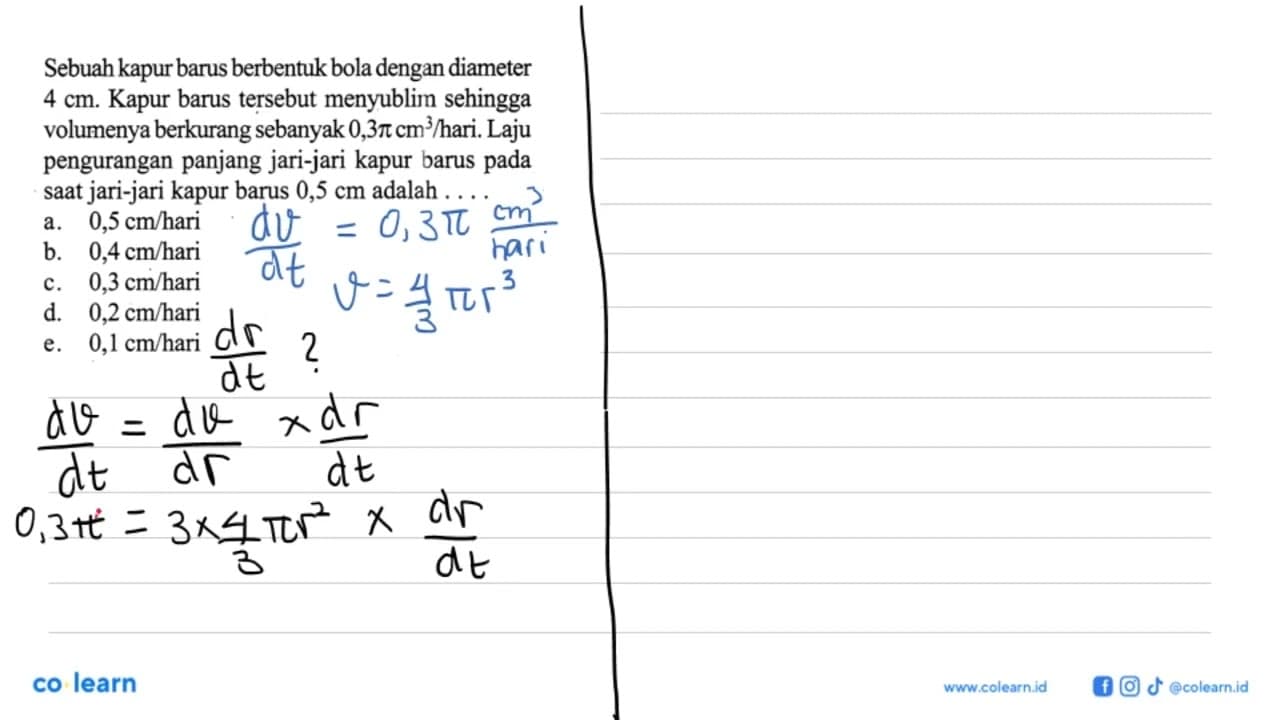 Sebuah kapur barus berbentuk bola dengan diameter
4 cm. Kapur barus tersebut menyublim sehingga
volumenya berkurang sebanyak 0,3π cm³/hari. Laju
pengurangan panjang jari-jari kapur barus pada
saat jari-jari kapur barus 0,5 cm adalah . . . .
a. 0,5 cm/hari
b. 0,4 cm/hari
c. 0,3 cm/hari
d. 0,2 cm/hari
e. 0,1 cm/hari
dv/dt = 0,3π cm³/hari
v = 4/3 πr³
dr/dt ?
dv/dt = dv/dr × dr/dt
0,3π = 3 × 4/3 πr² × dr/dt
co learn
www.colearn.id
@colearn.id